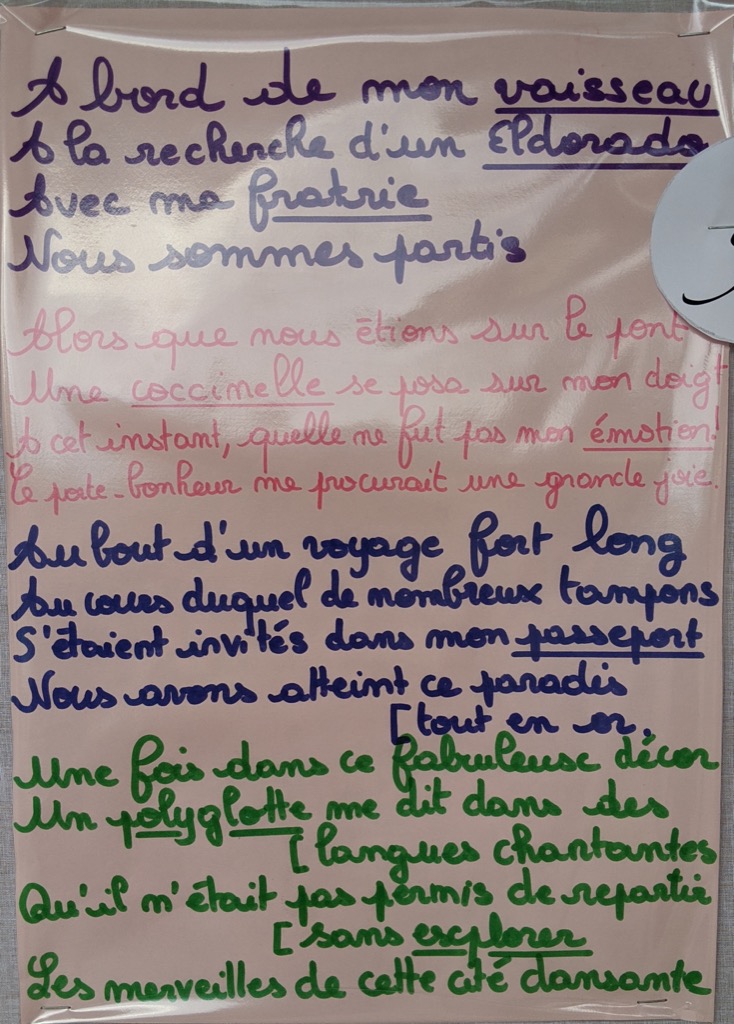 A bord de mon vaisseau
A la recherche d'un Eldorado
Avec ma fratrie
Nous sommes partis
Alors que nous étions sur le pont
Une coccinelle se posa sur mon doigt
A cet instant, quelle ne fut pas mon émotion!
Ce porte-bonheur me procurait une grande joie.
Au bout d'un voyage fort long
Au cours duquel de nombreux tampons
S'étaient invités dans mon passeport
Nous avons atteint ce paradis
[tout en or.
Une fois dans ce fabuleux décor
Un polyglotte me dit dans des
[langues chantantes
Qu'il n'était pas permis de repartir
[sans explorer
Les merveilles de cette cité dansante